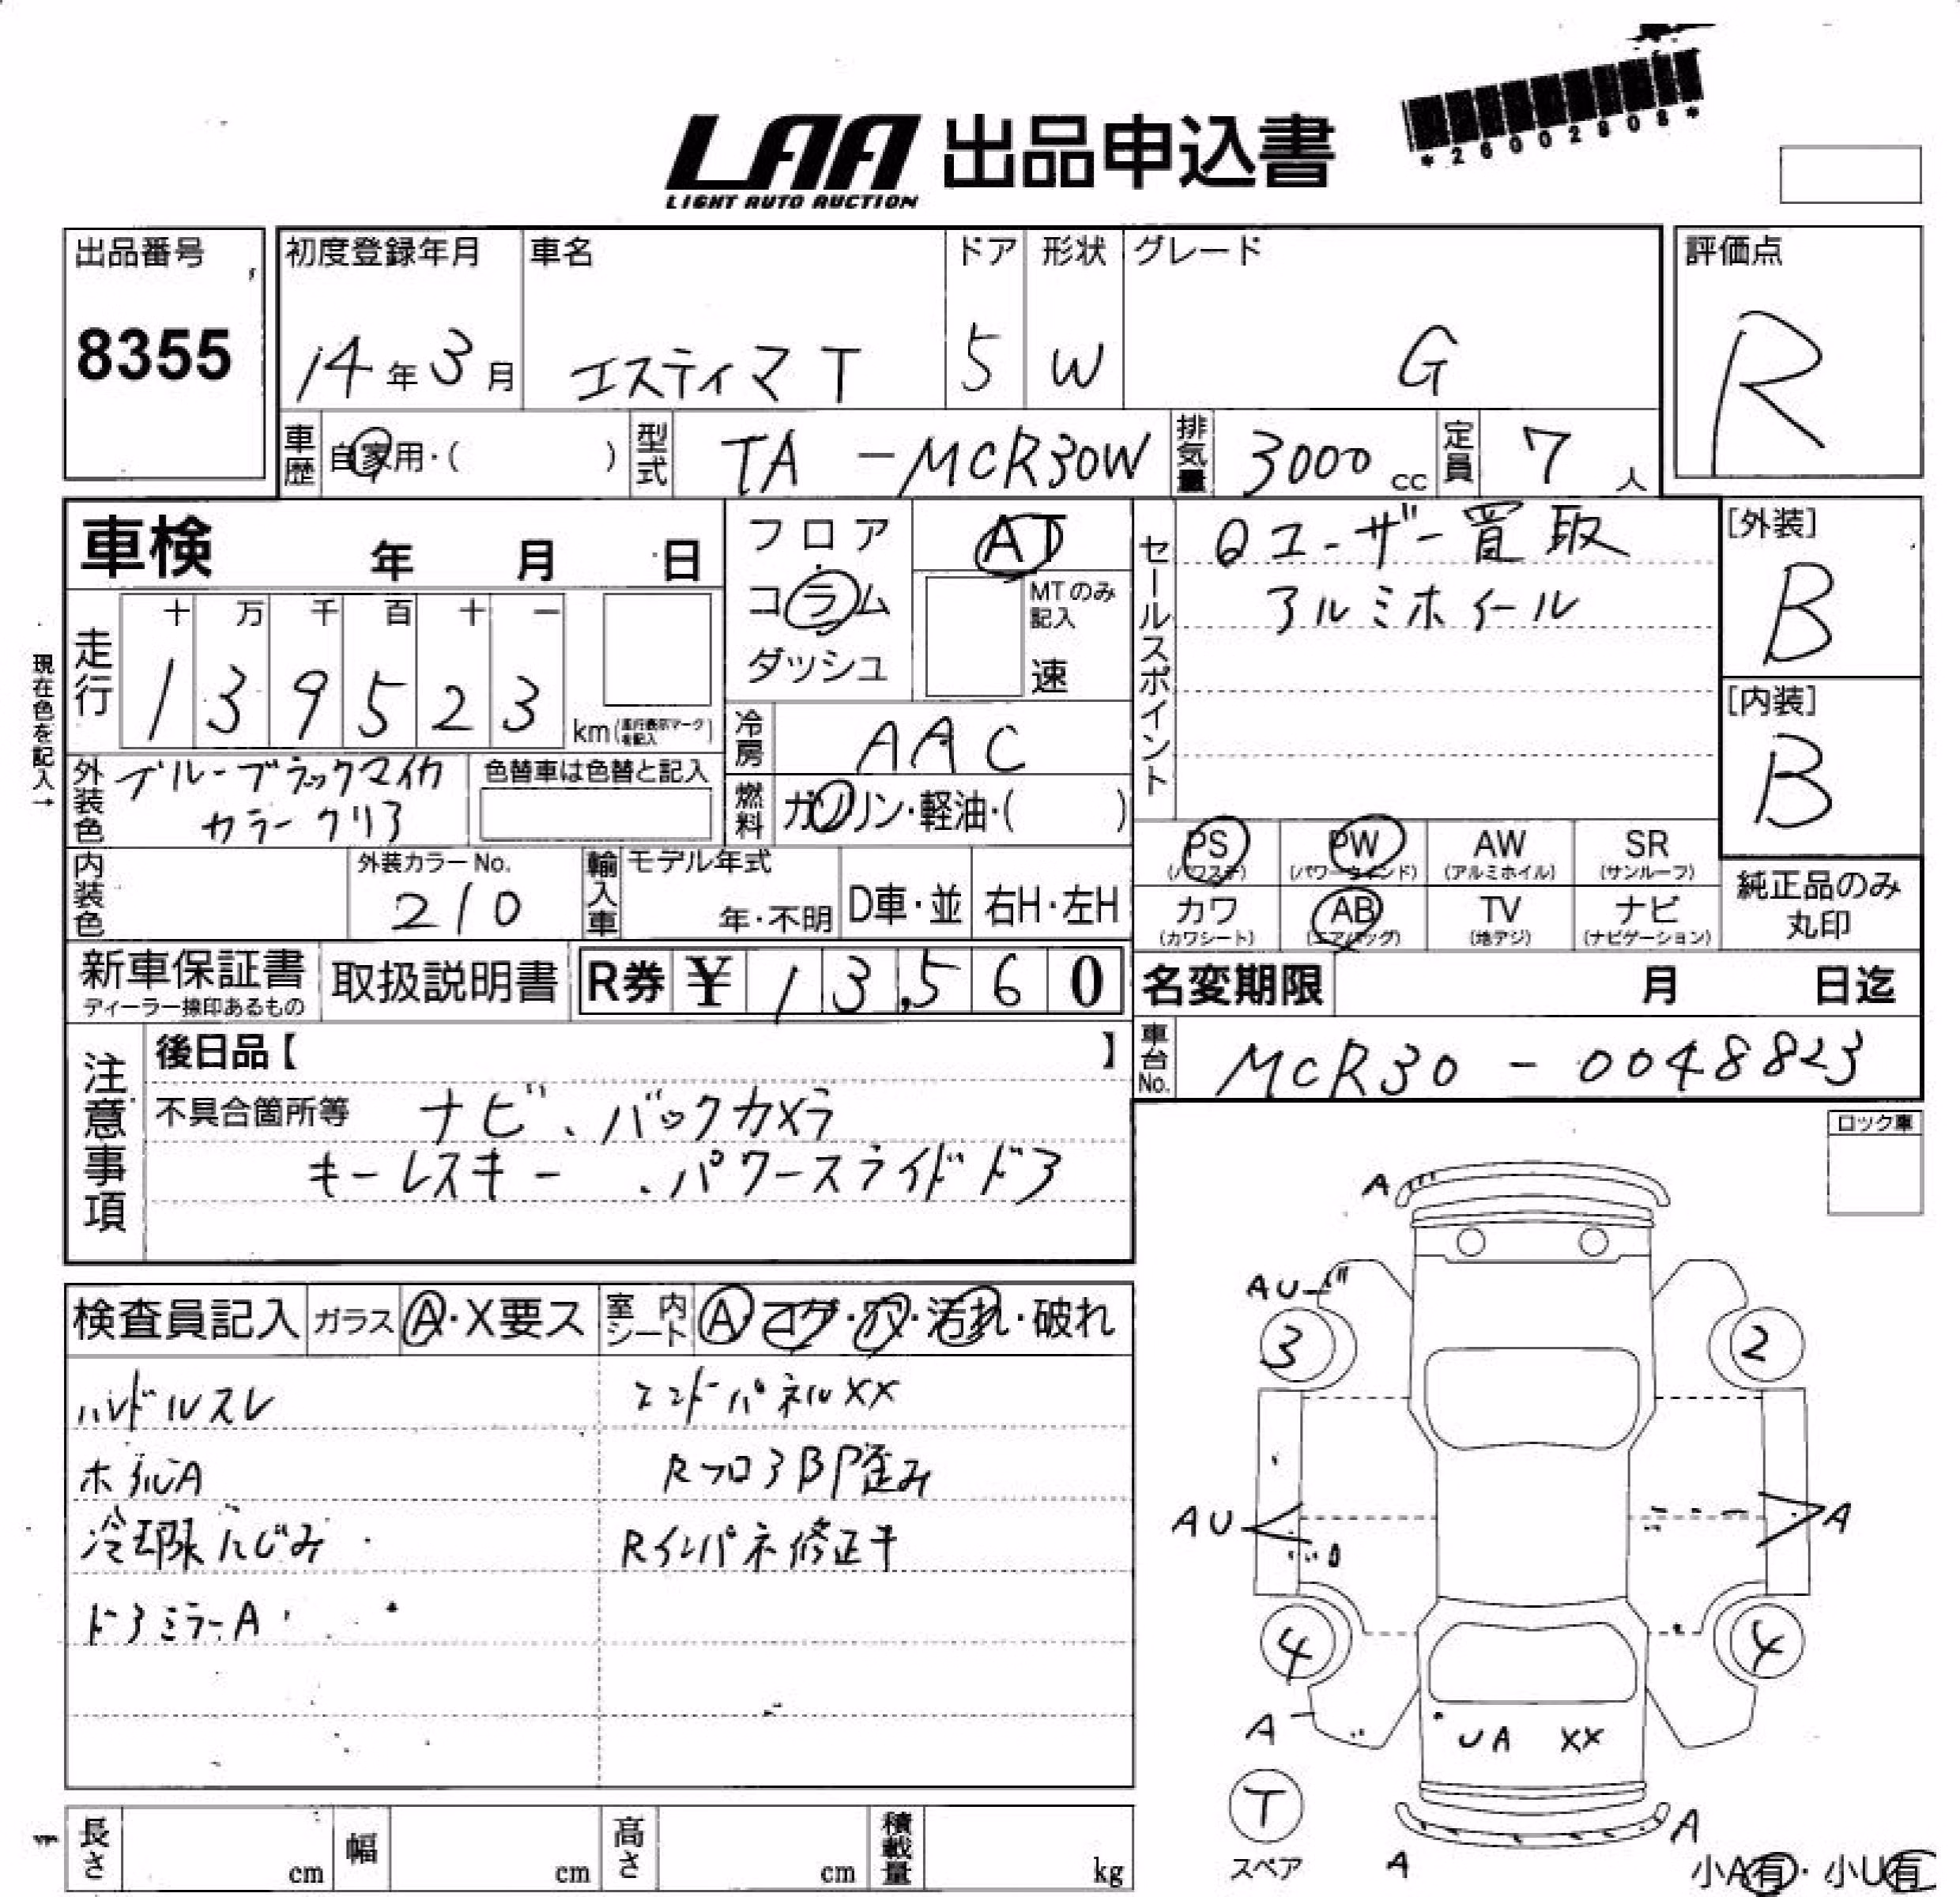 LAA 出品申込書
LIGHT AUTO AUCTION
*26002808*
出品番号 初度登録年月 車名 ドア 形状 グレード 評価点
8355 14年3月 エスティマT 5 W G R
車歴 自家用・( ) 型式 TA-MCR30W 排気量 3000cc 定員 7人
車検 年 月 日
フロア
コラム
ダッシュ
AT
MTのみ
記入
速
セールスポイント
ユーザー買取
アルミホイール
[外装]
B
[内装]
B
現在色を記入→
走行 十 万 千 百 十 一
1 3 9 5 2 3 km
冷房 AAC
外装色 ブルーブラックマイカ
カラークリア
色替車は色替と記入
燃料 ガソリン・軽油・( )
PS PW AW SR
(パワステ) (パワーウィンド) (アルミホイル) (サンルーフ)
カワ AB TV ナビ
(カワシート) (エアバッグ) (地デジ) (ナビゲーション)
純正品のみ
丸印
内装色 外装カラーNo. 輸入車 モデル年式
210 年・不明 D車・並 右H・左H
新車保証書 取扱説明書 R券 ¥ 13,560
ディーラー捺印あるもの
名変期限 月 日迄
車台No. MCR30-0048823
注意事項
後日品【 】
不具合箇所等 ナビ、バックカメラ
キーレスキー、パワースライドドア
ロック車
検査員記入 ガラス A・X要ス 室内シート A コゲ・穴・汚れ・破れ
ハンドルスレ エンドパネルXX
ホイルA RフロアBP歪み
冷却限にじみ Rインパネ修正キ
ドアミラーA
A
AU
3 2
AU A
4 4
A UA XX
T
スペア
A A
小A有・小U有
長さ cm 幅 cm 高さ cm 積載量 kg